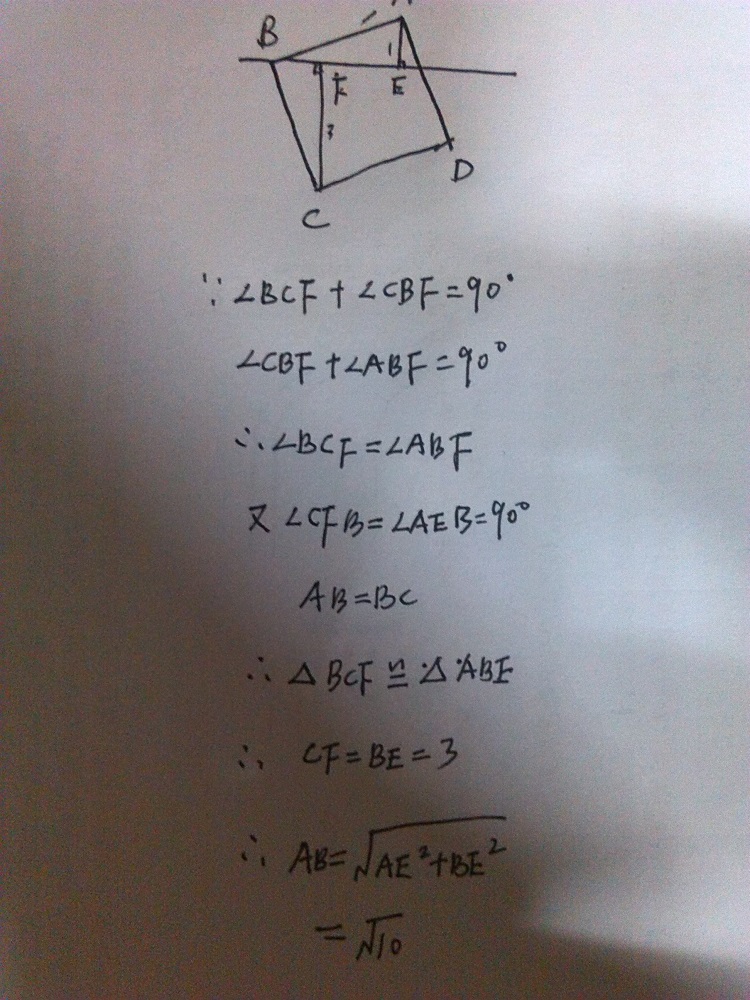 B
1
F
E
3
D
C
∵ ∠BCF + ∠CBF = 90°
∠CBF + ∠ABF = 90°
∴ ∠BCF = ∠ABF
又 ∠CFB = ∠AEB = 90°
AB = BC
∴ △BCF ≌ △ABE
∴ CF = BE = 3
∴ AB = √AE²+BE²
= √10